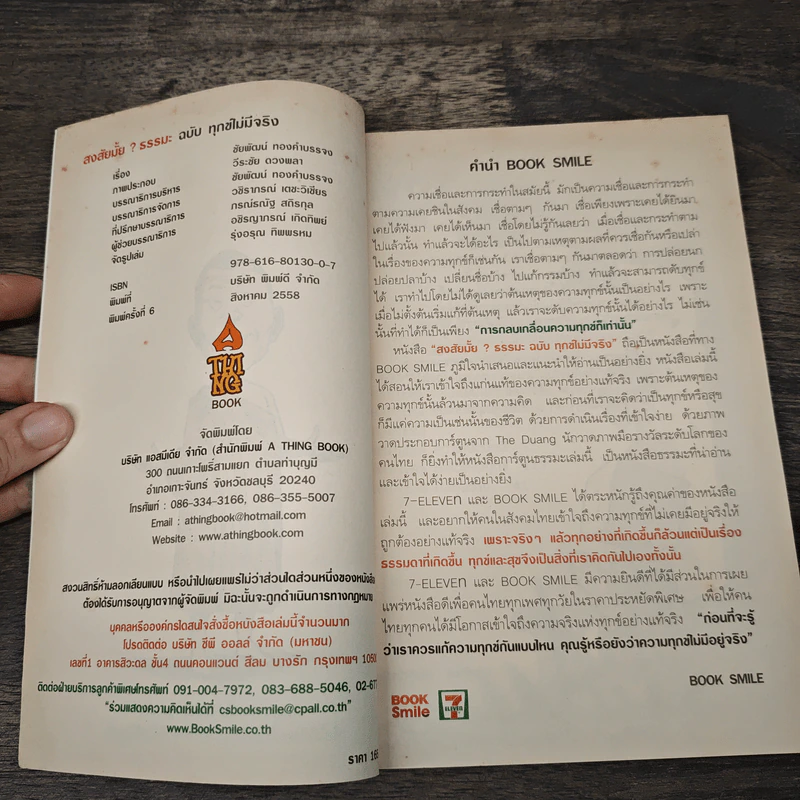 สงสัยมั้ย ? ธรรมะ ฉบับ ทุกข์ไม่มีจริง
เรื่อง ชัยพัฒน์ ทองคำบรรจง
ภาพประกอบ วีระชัย ดวงพลา
บรรณาธิการบริหาร ชัยพัฒน์ ทองคำบรรจง
บรรณาธิการจัดการ วชิราภรณ์ เดชะวิเชียร
ที่ปรึกษาบรรณาธิการ กรณ์รณัฐ สถิรกุล
ผู้ช่วยบรรณาธิการ อชิรญาภรณ์ เกิดทิพย์
จัดรูปเล่ม รุ่งอรุณ ทิพพรหม
ISBN 978-616-80130-0-7
พิมพ์ที่ บริษัท พิมพ์ดี จำกัด
พิมพ์ครั้งที่ 6 สิงหาคม 2558
A
THI
NG
BOOK
จัดพิมพ์โดย
บริษัท แอสมีเดีย จำกัด (สำนักพิมพ์ A THING BOOK)
300 ถนนเกาะโพธิ์สามแยก ตำบลท่าบุญมี
อำเภอเกาะจันทร์ จังหวัดชลบุรี 20240
โทรศัพท์ : 086-334-3166, 086-355-5007
Email : athingbook@hotmail.com
Website : www.athingbook.com
สงวนสิทธิ์ห้ามลอกเลียนแบบ หรือนำไปเผยแพร่ไม่ว่าส่วนใดส่วนหนึ่งของหนังสือ
ต้องได้รับการอนุญาตจากผู้จัดพิมพ์ มิฉะนั้นจะถูกดำเนินการทางกฎหมาย
บุคคลหรือองค์กรใดสนใจสั่งซื้อหนังสือเล่มนี้จำนวนมาก
โปรดติดต่อ บริษัท ซีพี ออลล์ จำกัด (มหาชน)
เลขที่1 อาคารสีวะดล ชั้น4 ถนนคอนแวนต์ สีลม บางรัก กรุงเทพฯ 10500
ติดต่อฝ่ายบริการลูกค้าพิเศษโทรศัพท์ 091-004-7972, 083-688-5046, 02-677
“ร่วมแสดงความคิดเห็นได้ที่ csbooksmile@cpall.co.th”
www.BookSmile.co.th
ราคา 165
คำนำ BOOK SMILE
ความเชื่อและการกระทำในสมัยนี้ มักเป็นความเชื่อและการกระทำ
ตามความเคยชินในสังคม เชื่อตามๆ กันมา เชื่อเพียงเพราะเคยได้ยินมา
เคยได้ฟังมา เคยได้เห็นมา เชื่อโดยไม่รู้กันเลยว่า เมื่อเชื่อและกระทำตาม
ไปแล้วนั้น ทำแล้วจะได้อะไร เป็นไปตามเหตุตามผลที่ควรเชื่อกันหรือเปล่า
ในเรื่องของความทุกข์ก็เช่นกัน เราเชื่อตามๆ กันมาตลอดว่า การปล่อยนก
ปล่อยปลาบ้าง เปลี่ยนชื่อบ้าง ไปแก้กรรมบ้าง ทำแล้วจะสามารถดับทุกข์
ได้ เราทำไปโดยไม่ได้ดูเลยว่าต้นเหตุของความทุกข์นั้นเป็นอย่างไร เพราะ
เมื่อไม่ตั้งต้นเริ่มแก้ที่ต้นเหตุ แล้วเราจะดับความทุกข์นั้นได้อย่างไร ไม่เช่น
นั้นที่ทำได้ก็เป็นเพียง “การกลบเกลื่อนความทุกข์ก็เท่านั้น”
หนังสือ “สงสัยมั้ย ? ธรรมะ ฉบับ ทุกข์ไม่มีจริง” ถือเป็นหนังสือที่ทาง
BOOK SMILE ภูมิใจนำเสนอและแนะนำให้อ่านเป็นอย่างยิ่ง หนังสือเล่มนี้
ได้สอนให้เราเข้าใจถึงแก่นแท้ของความทุกข์อย่างแท้จริง เพราะต้นเหตุของ
ความทุกข์นั้นล้วนมาจากความคิด และก่อนที่เราจะคิดว่าเป็นทุกข์หรือสุข
ก็มีแค่ความเป็นเช่นนั้นของชีวิต ด้วยการดำเนินเรื่องที่เข้าใจง่าย ด้วยภาพ
วาดประกอบการ์ตูนจาก The Duang นักวาดภาพมือรางวัลระดับโลกของ
คนไทย ก็ยิ่งทำให้หนังสือการ์ตูนธรรมะเล่มนี้ เป็นหนังสือธรรมะที่น่าอ่าน
และเข้าใจได้ง่ายเป็นอย่างยิ่ง
7-ELEVEn และ BOOK SMILE ได้ตระหนักรู้ถึงคุณค่าของหนังสือ
เล่มนี้ และอยากให้คนในสังคมไทยเข้าใจถึงความทุกข์ที่ไม่เคยมีอยู่จริงให้
ถูกต้องอย่างแท้จริง เพราะจริงๆ แล้วทุกอย่างที่เกิดขึ้นก็ล้วนแต่เป็นเรื่อง
ธรรมดาที่เกิดขึ้น ทุกข์และสุขจึงเป็นสิ่งที่เราคิดกันไปเองทั้งนั้น
7-ELEVEn และ BOOK SMILE มีความยินดีที่ได้มีส่วนในการเผย
แพร่หนังสือดีเพื่อคนไทยทุกเพศทุกวัยในราคาประหยัดพิเศษ เพื่อให้คน
ไทยทุกคนได้มีโอกาสเข้าใจถึงความจริงแห่งทุกข์อย่างแท้จริง “ก่อนที่จะรู้
ว่าเราควรแก้ความทุกข์กันแบบไหน คุณรู้หรือยังว่าความทุกข์ไม่มีอยู่จริง”
BOOK SMILE
BOOK
Smile
7
ELEVEn